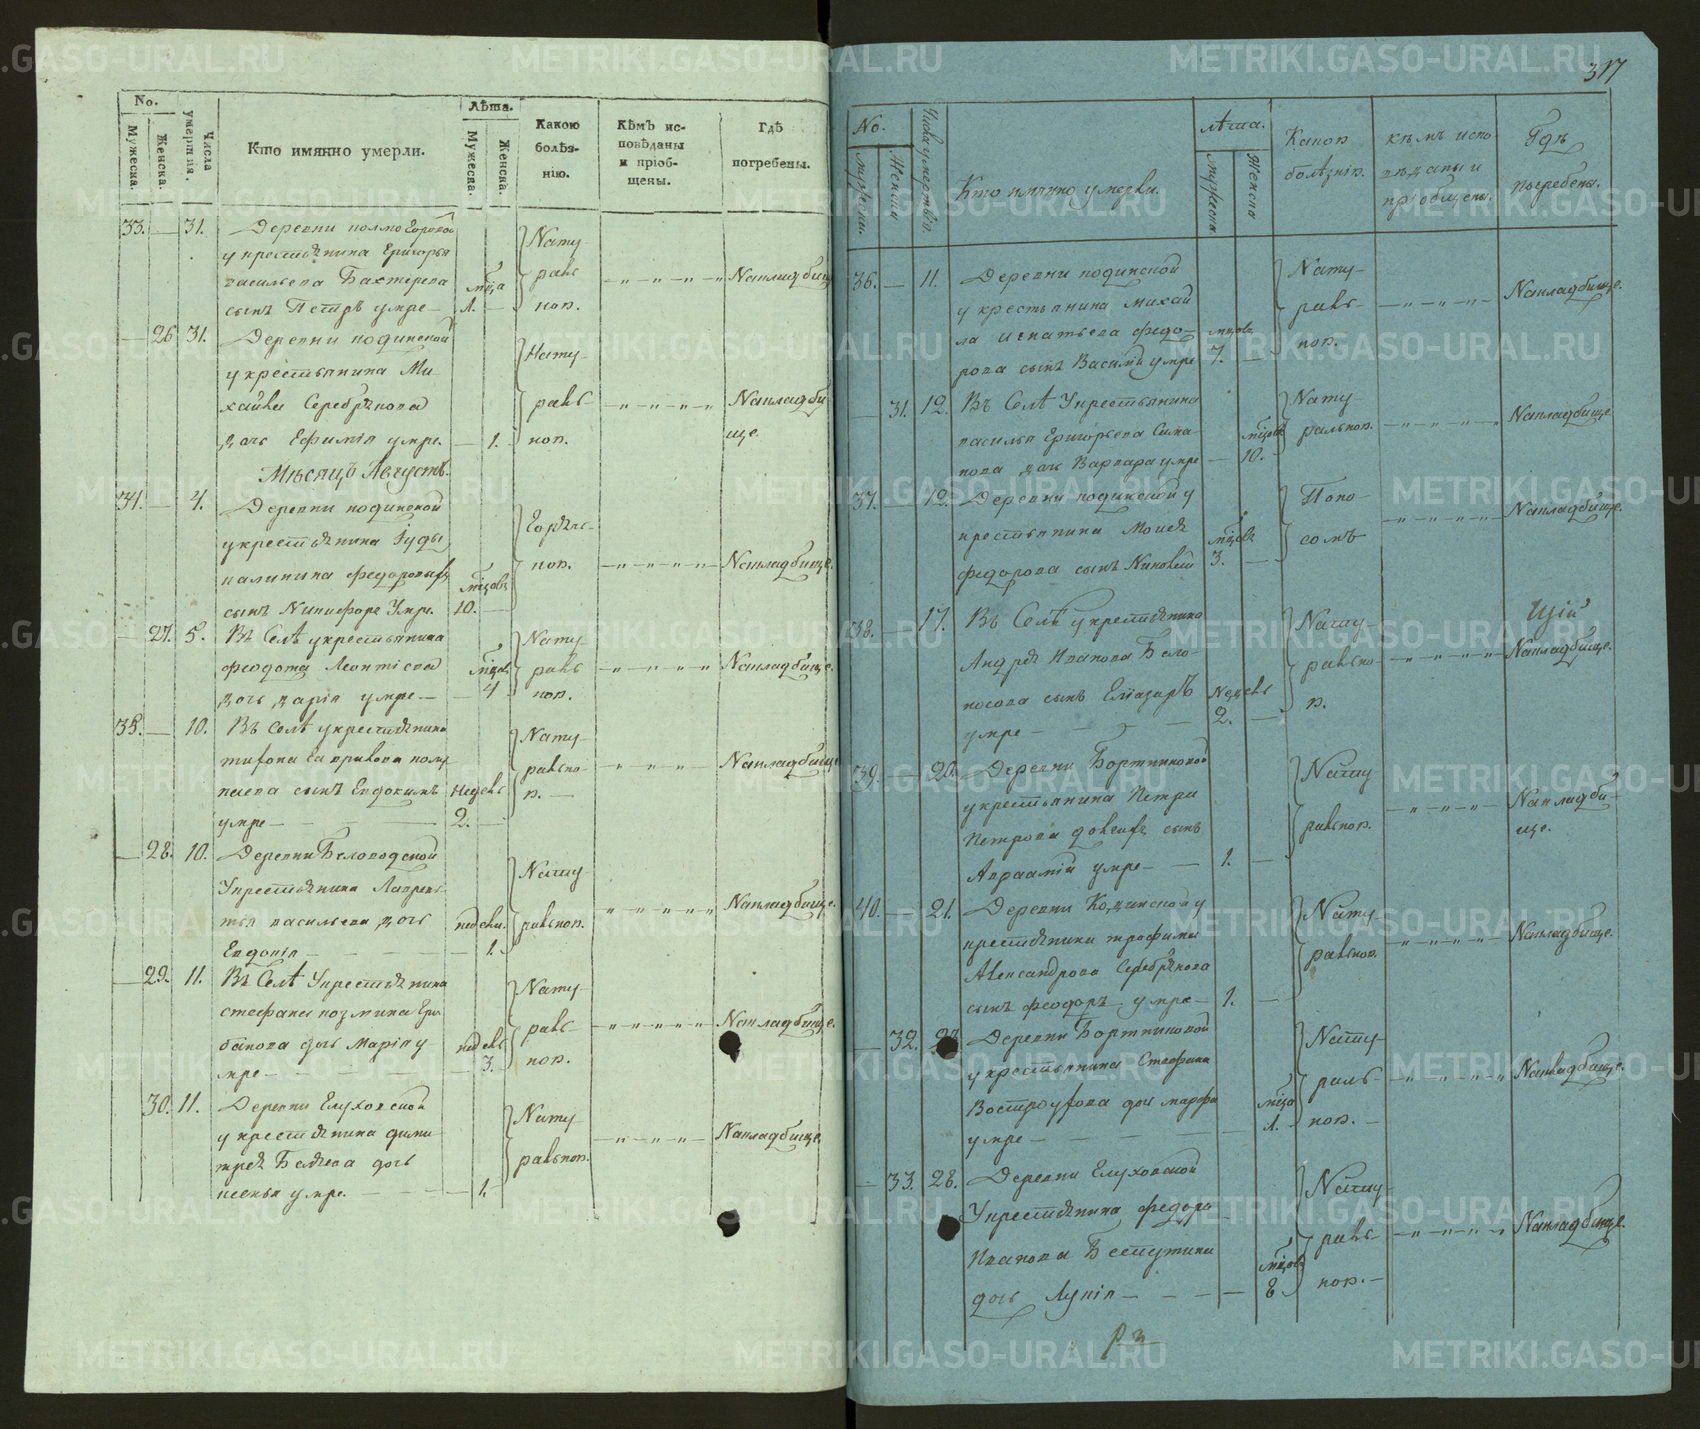 No.
Мужеска.
Женска.
Числа умершия.
Кто имянно умерли.
Лѣта.
Мужеска.
Женска.
Какою болѣз-
нію.
Кѣмъ ис-
повѣданы
и пріоб-
щены.
Гдѣ
погребены.
33. — 31.
у крестьянина Григорья
васильева Бахтерева
сынъ Петръ умре — мца 1. —
Нату
раль
ною.
На кладбищ
— 26 31.
Деревни кодинской
у крестьянина Ми
хайла Серебрякова
дочь Ефимія умре. — 1.
Нату-
раль-
ною.
На кладби
ще.
Мѣсяцъ Августъ.
34. — 4.
Деревни кодинской
у крестьянина Іуды
калинина федоровыхъ
сынъ Никифоръ Умре. мцовъ 10. —
Горячь-
ною.
На кладбище.
— 27. 5.
Въ Селѣ у крестьянина
Феодота Леонтіева
дочь дарія умре — — мцовъ 4
Нату
раль
ною.
На кладбище.
35. — 10.
Въ Селѣ у крестьянина
сынъ Евдокимъ недель
умре — 2. —
Нату-
рально-
ю. —
На кладбище
— 28. 10.
Деревни Беловодской
У крестьянина Лаврень-
тья васильева дочь недели.
Евдокія — — — 1.
Нату
ральною.
На кладбище.
— 29. 11.
Въ Селѣ У крестьянина
стефана козмина Гри-
банова дочь Марія у недель
мре — — — — — 3.
Нату
раль-
ною.
На кладбище.
30. 11.
Деревни Глуховской
у крестьянина дими-
трія Беляева дочь
ксенья умре. — — — 1.
Нату
ральною.
На кладбище.
317
No.
Мужески.
Женски
Числа умертвія.
Кто имянно умерли.
лѣта.
Мужеска
Женско
Какою
болѣзнію.
кѣмъ испо-
вѣданы и
пріобщены.
Гдѣ
погребены.
36. — 11.
Деревни кодинской
у крестьянина михай
ла игнатьева федо- мцовъ
рова сынъ Василій умре 7. —
Нату-
раль-
ною.
На кладбище.
— 31. 12.
Въ Селѣ У крестьянина
василья Григорьева Сима- мцовъ
нова дочь Варвара умре — 10.
Нату
ральною.
На кладбище
37. — 12.
Деревни кодинской у
крестьянина Моисея мцовъ
федорова сынъ 3. —
Поно-
сомъ
На кладбище.
38. — 17.
Въ Селѣ у крестьянина
Андрея Иванова Бело-
носова сынъ Елiазаръ недель
умре — — — 2. —
Нату-
рально
ю.
На кладбище.
39. — 20.
Деревни Бортниковой
у крестьянина Петра
Петрова сынъ
Авраамій умре — — 1. —
Нату
ральною.
На кладби-
ще.
40. — 21.
Деревни Кодинской у
крестьянина трофима
Александрова Серебрякова
сынъ феодоръ умре — 1. —
Нату-
ральною.
На кладбище.
— 32.
Деревни Бортниковой
у крестьянина Стефана
Востроухова дочь марфа мца
умре — — — — — 1. —
Нату-
раль-
ною. —
На кладбище.
— 33. 28.
Деревни Глуховской
У крестьянина федора
Иванова мцовъ
дочь Лукія — — — — 8
Нату-
раль-
ною. —
На кладбище.
METRIKI.GASO-URAL.RU